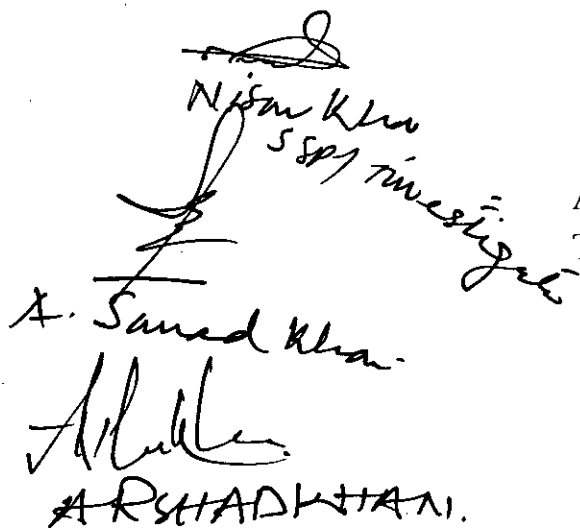 Nisar Khan
SSP/Investigation
A. Samad Khan
ARSHAD KHAN.